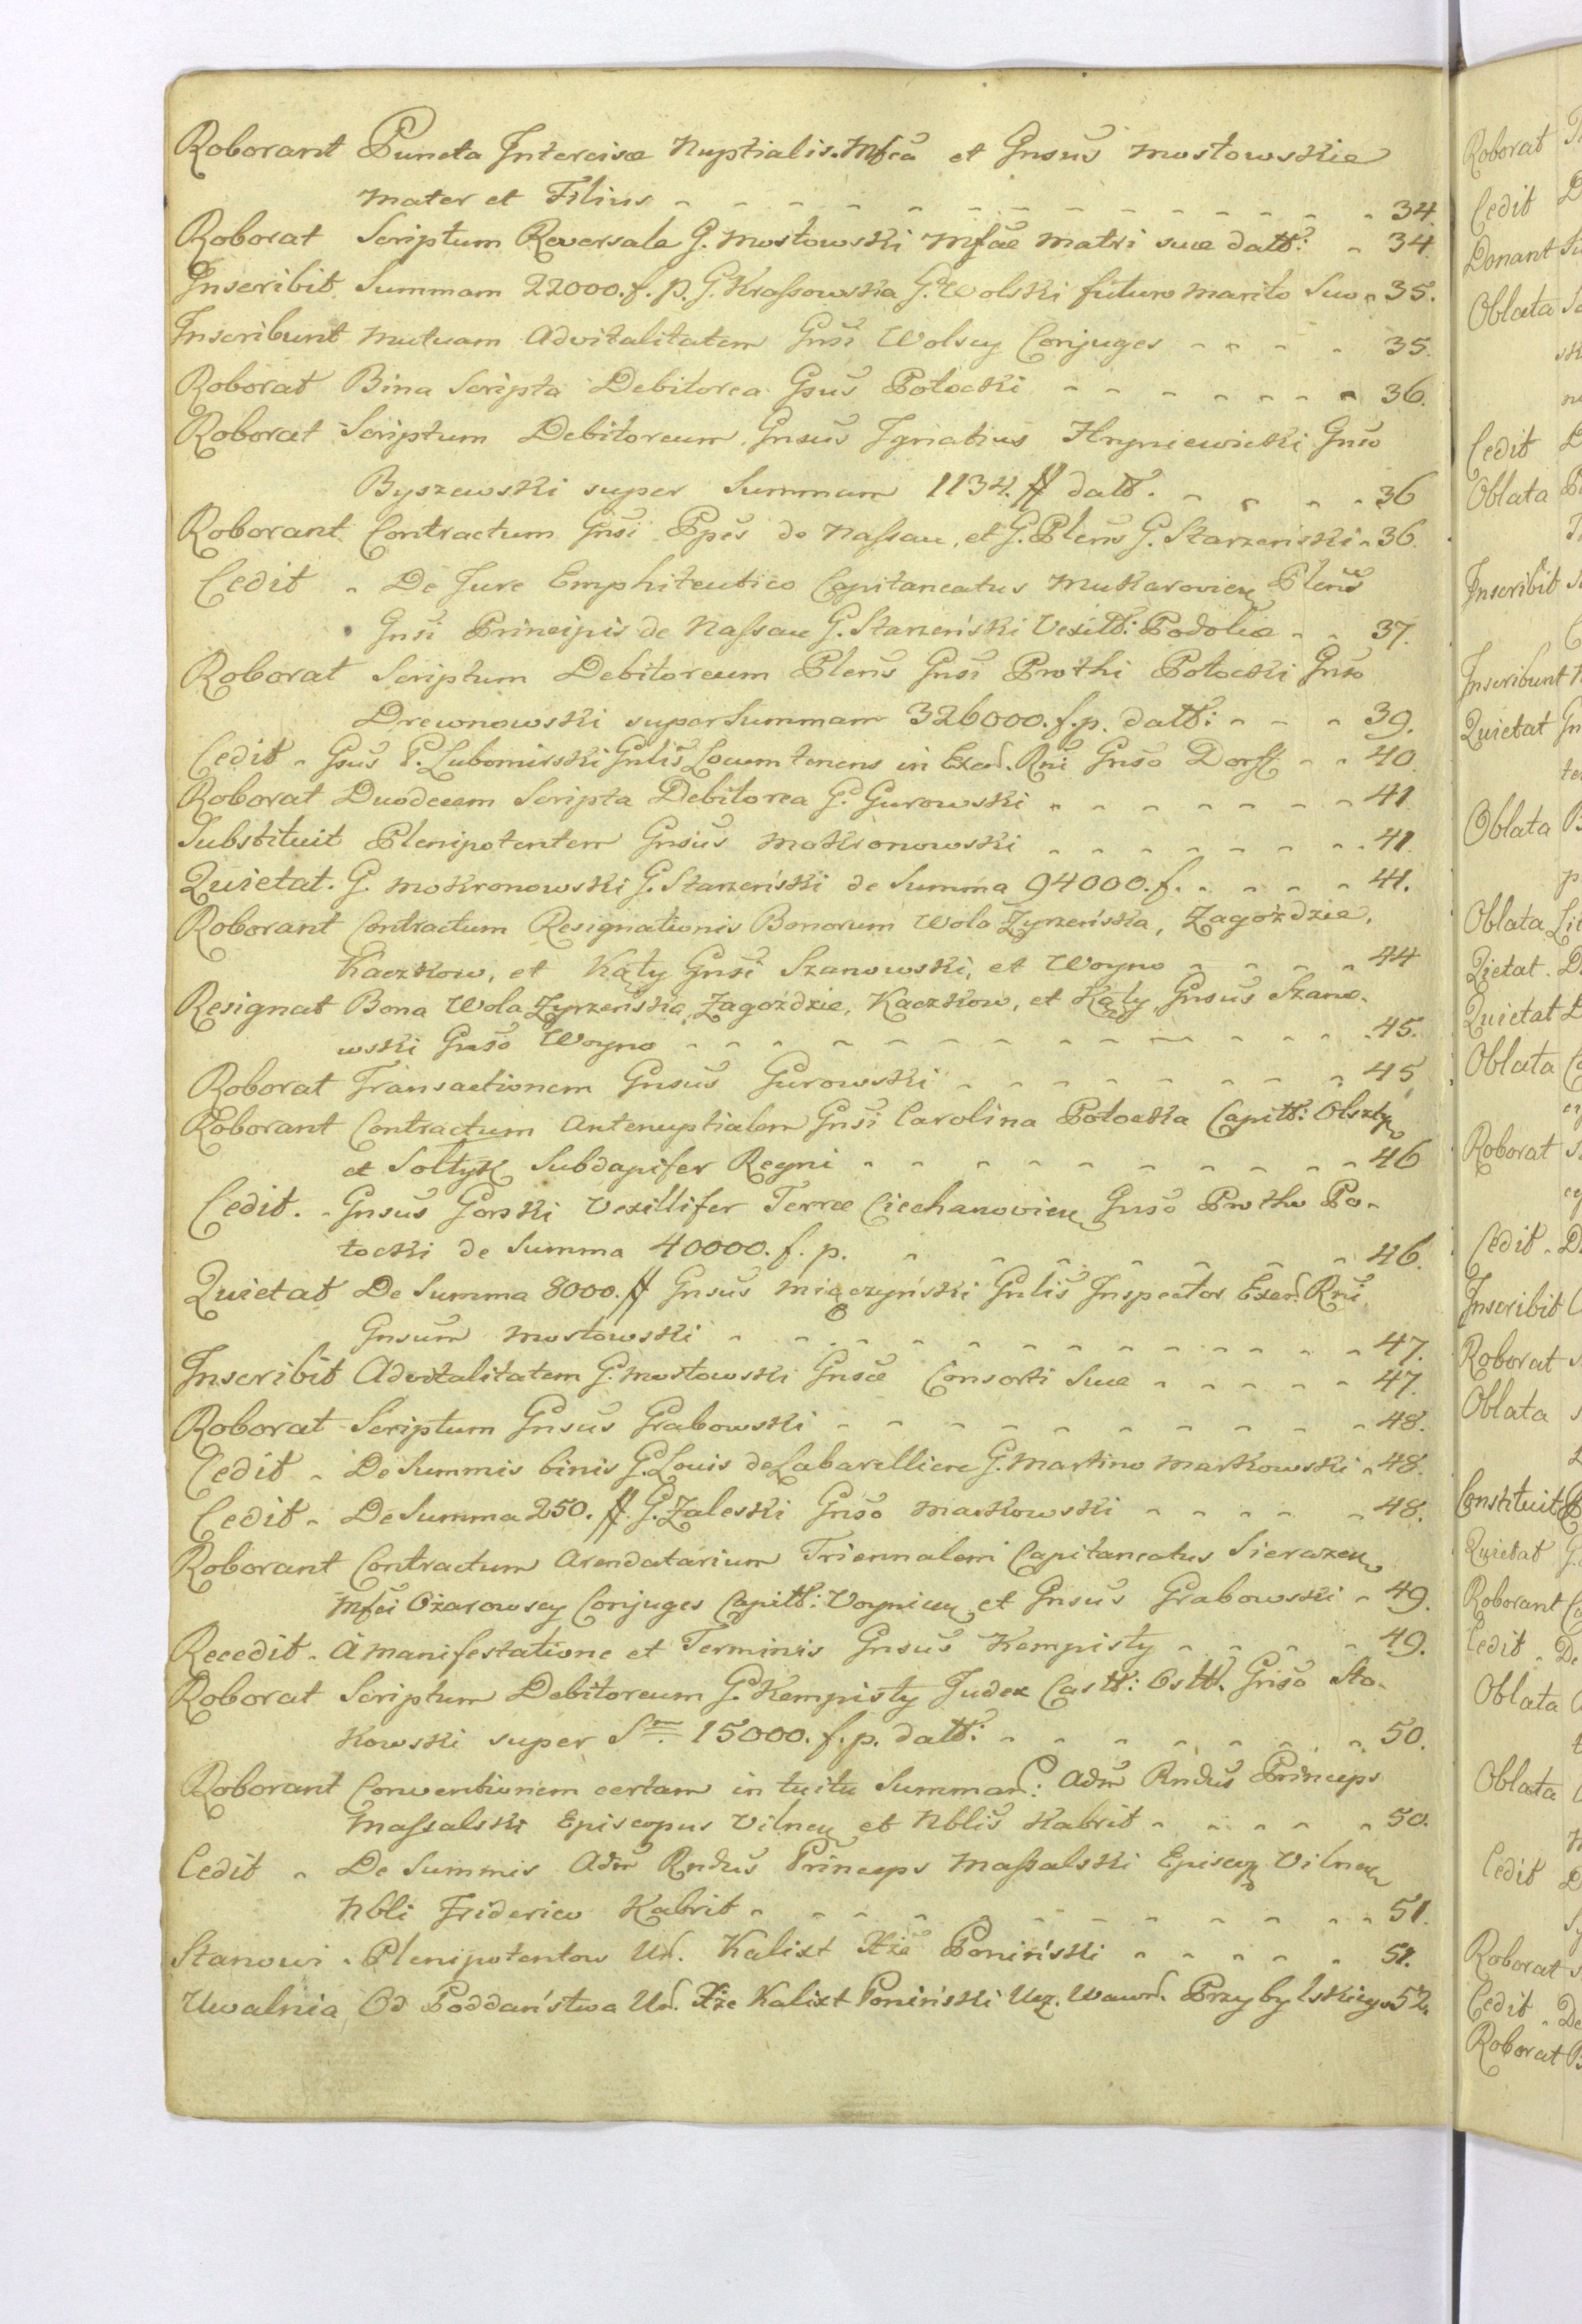 Roborant Puncta Intercisæ Nuptialis. Mfca et Gnsus Mostowskie
Mater et Filius - - - 34.
Roborat Scriptum Reversale G. Mostowski Mfcae Matri suæ datt: - 34.
Inscribit Summam 22000. f. p. G. Krassowska G. Wolski futuro marito Suo - 35.
Inscribunt mutuam Advitalitatem Gnsi Wolscy Conjuges - - - 35.
Roborat Bina Scripta Debitorea Gsus Potocki - - - 36.
Roborat Scriptum Debitoreum Gnsus Ignatius Hryniewiecki Gnso
Byszewski super Summam 1134. # datt. - - - 36
Roborant Contractum Gnsi Ppes de Nassau, et G. Plens G. Starzeński - 36.
Cedit - De Jure Emphiteutico Capitaneatus Mukarovien Plens
Gnsi Principis de Nassau G. Starzeński Vexill: Podoliæ - - 37.
Roborat Scriptum Debitoreum Plens Gnsi Prothi Potocki Gnso
Drewnowski super Summam 326000. f. p. datt: - - - 39.
Cedit - Gsus P. Lubomirski Gnlis Locum tenens in Exerd. Rni Gnso Dorff - - 40.
Roborat Duodecem Scripta Debitorea G. Gurowski - - - 41
Substituit Plenipotentem Gnsus Mokronowski - - - 41.
Quietat. G. Mokronowski G. Starzeński de Summa 94000. f. - - - 41.
Roborant Contractum Resignationis Bonorum Wola Zyrzeńska, Zagoździe,
Kaczkow, et Kąty Gnsi Szanowski, et Woyno - - - 44
Resignat Bona Wola Zyrzeńska, Zagoździe, Kaczkow, et Kąty Gnsus Szano-
wski Gnso Woyno - - - 45.
Roborat Transactionem Gnsus Gurowski - - - 45
Roborant Contractum Antenuptialem Gnsi Carolina Potocka Capitt: Olszty
et Sołtyk Subdapifer Regni - - - 46
Cedit. - Gnsus Gorski Vexillifer Terræ Ciechanovien Gnso Protho Po-
tocki de Summa 40000. f. p. - - - 46.
Quietat De Summa 8000. # Gnsus Miączyński Gnlis Inspector Exerd. Rni
Gnsum Mostowski - - - 47.
Inscribit Advitalitatem G. Mostowski Gnsæ Consorti Suæ - - - 47.
Roborat Scriptum Gnsus Grabowski - - - 48.
Cedit - De Summis binis G. Louis de Labarelliere G. Martino Markowski - 48.
Cedit - De Summa 250. #. G. Zaleski Gnso Markowski - - - 48.
Roborant Contractum Arendatarium Triennalem Capitaneatus Sierazen
Mfci Ożarowscy Conjuges Capitt: Woynicen et Gnsus Grabowski - 49.
Recedit - à Manifestatione et Terminis Gnsus Kempisty - - - 49.
Roborat Scriptum Debitoreum G. Kempisty Judex Castt: Ostt. Gnso Sto-
kowski super Sm. 15000. f. p. datt: - - - 50.
Roborant Conventionem certam intuitu Summar: Adm Rndus Princeps
Massalski Episcopus Vilnen et Nblis Kabrit - - - 50.
Cedit - De Summis Adm Rndus Princeps Massalski Episcop Vilnen
Nbli Friderico Kabrit - - - 51.
Stanowi - Plenipotentow Ur. Kalixt Xże Poniński - - - 51.
Uwalnia, Od Poddaństwa Ur. Xże Kalixt Poniński Ucz. Wawrz. Przybylskiego 52.
Roborat
Cedit
Donant
Oblata
Cedit
Oblata
Inscribit
Inscribunt
Quietat
Oblata
Oblata
Qietat.
Quietat
Oblata
Roborat
Cedit -
Inscribit
Roborat
Oblata
Constituit
Quietat
Roborant
Cedit -
Oblata
Oblata
Cedit
Roborat
Cedit -
Roborat